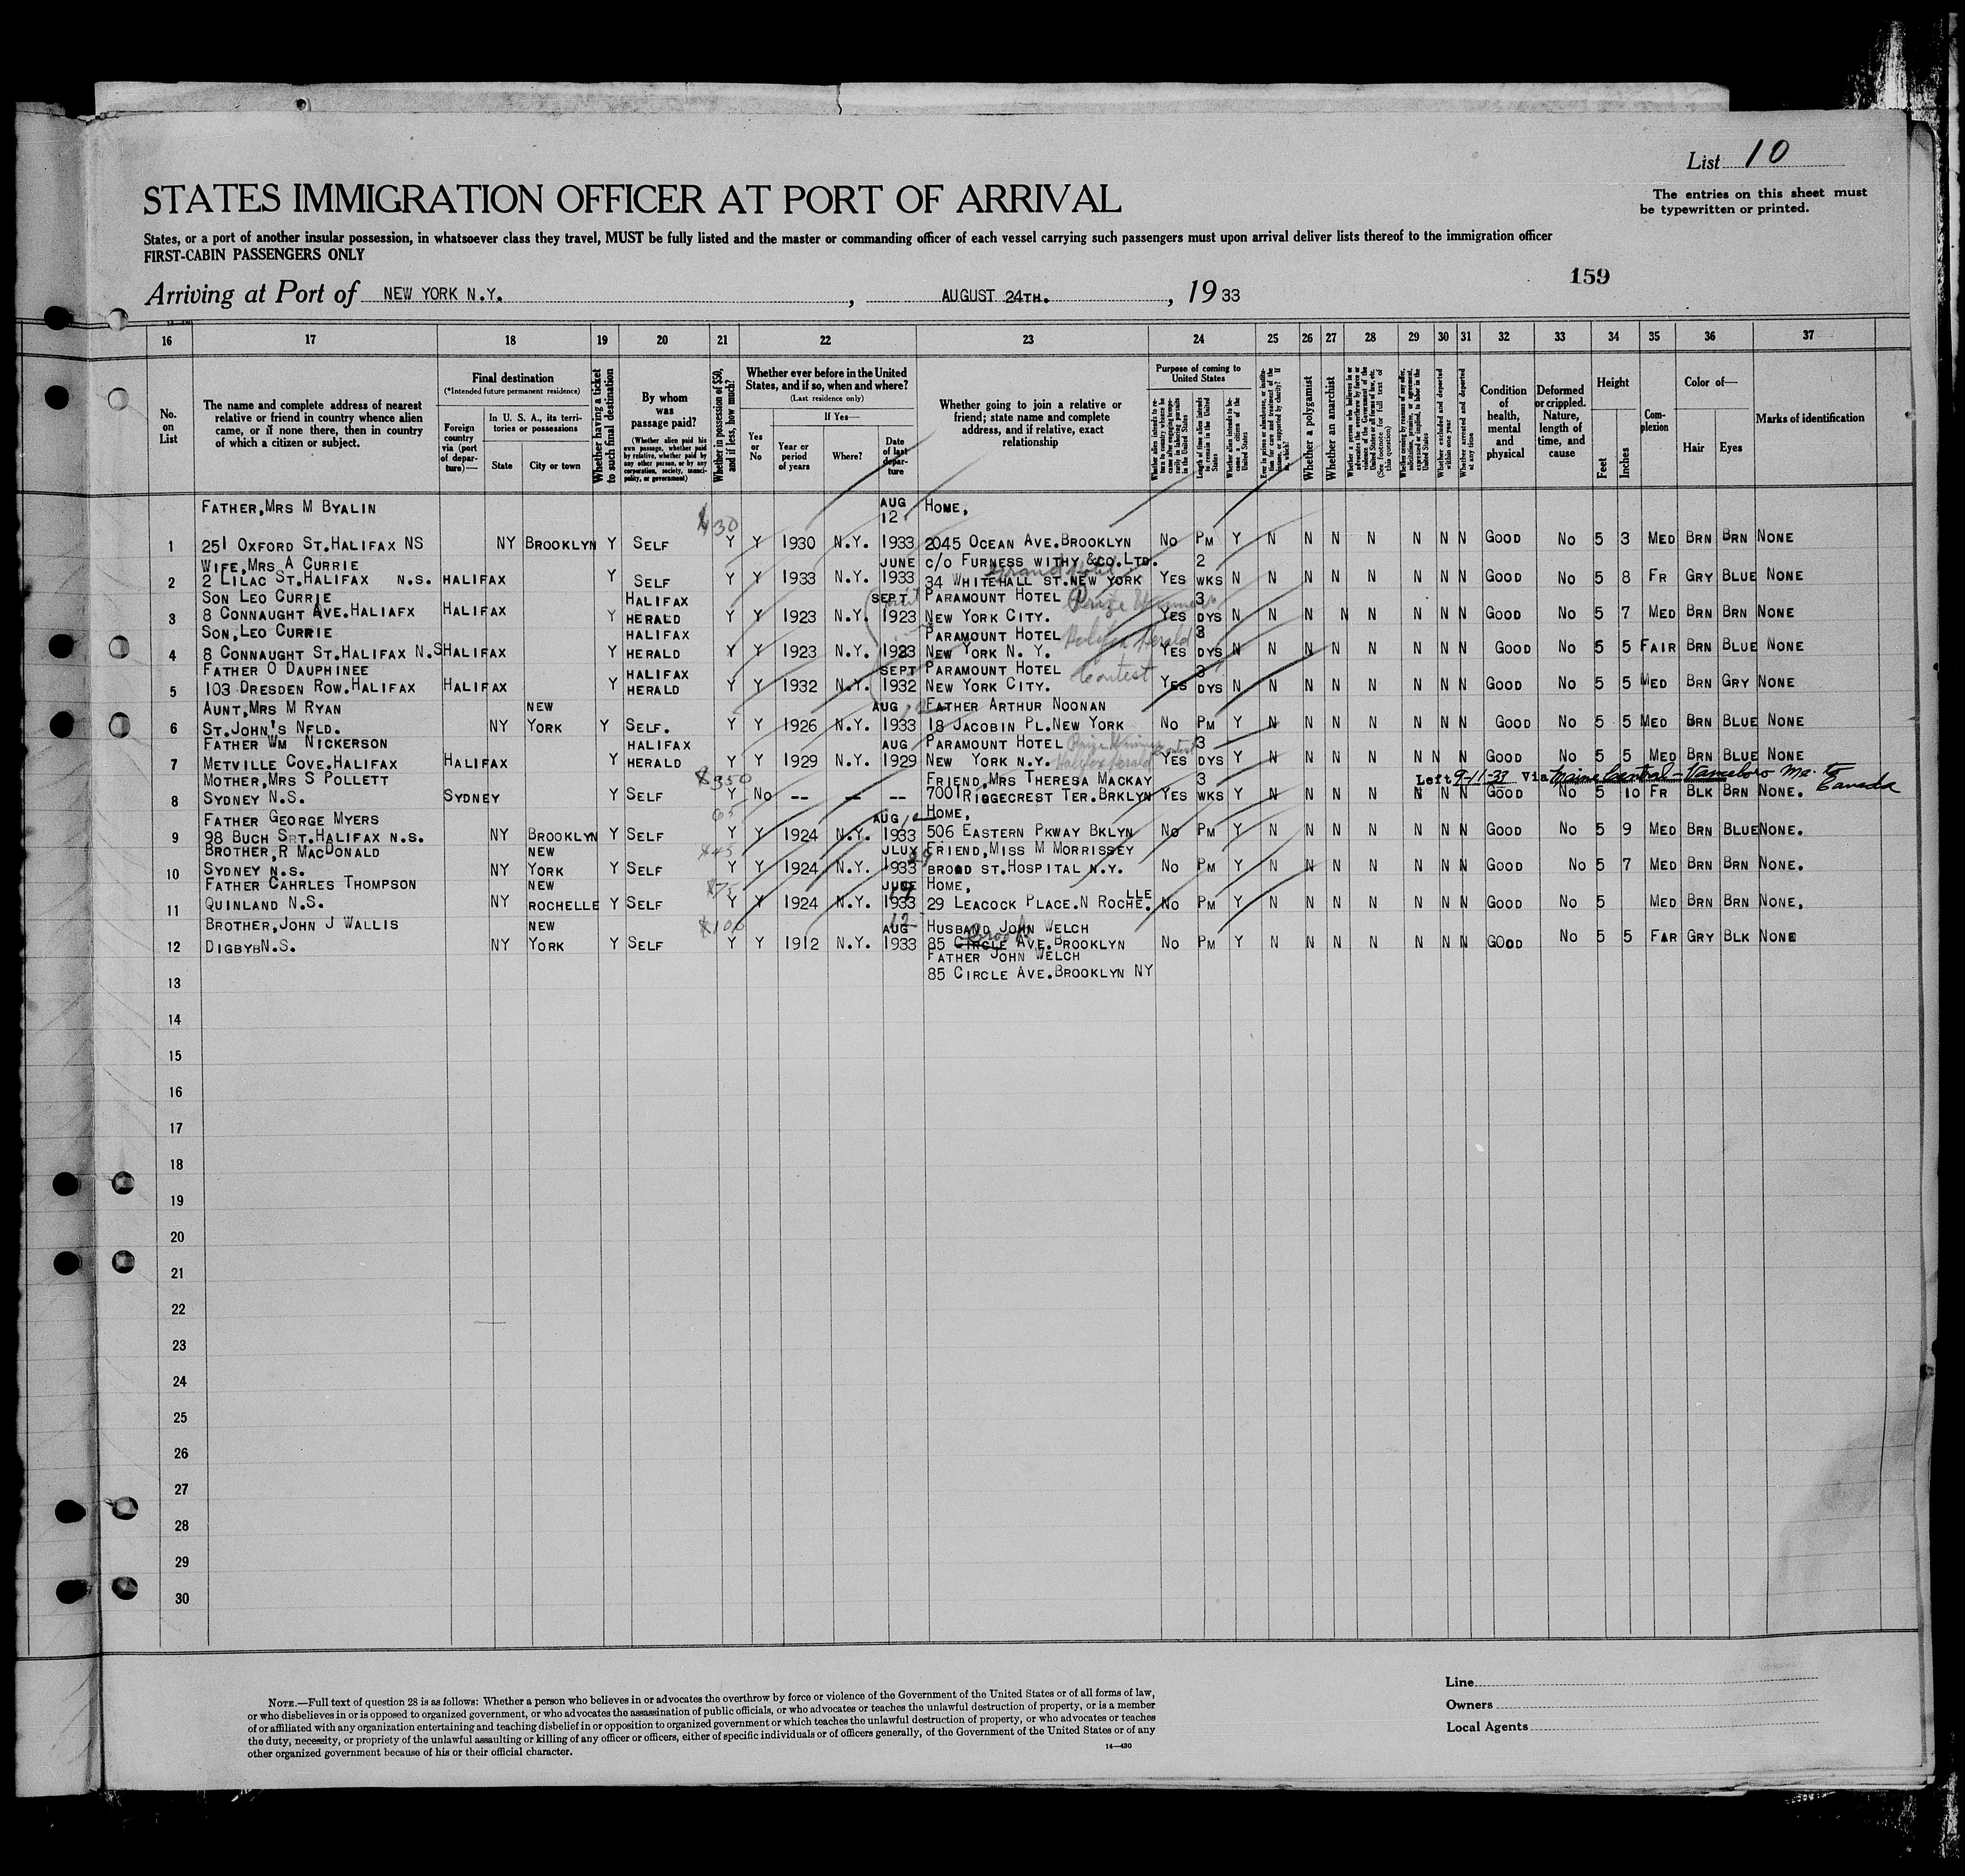 List 10
The entries on this sheet must
be typewritten or printed.
STATES IMMIGRATION OFFICER AT PORT OF ARRIVAL
States, or a port of another insular possession, in whatsoever class they travel, MUST be fully listed and the master or commanding officer of each vessel carrying such passengers must upon arrival deliver lists thereof to the immigration officer
FIRST-CABIN PASSENGERS ONLY
159
Arriving at Port of NEW YORK N.Y. , AUGUST 24TH. , 19 33
16 17 18 19 20 21 22 23 24 25 26 27 28 29 30 31 32 33 34 35 36 37
No. on List
The name and complete address of nearest relative or friend in country whence alien came, or if none there, then in country of which a citizen or subject.
Final destination
(*Intended future permanent residence)
Foreign country via (port of departure)—
In U. S. A., its territories or possessions
State
City or town
Whether having a ticket to such final destination
By whom was passage paid?
(Whether alien paid his own passage, whether paid by relative, whether paid by any other person, or by any corporation, society, municipality, or government)
Whether in possession of $50, and if less, how much?
Whether ever before in the United States, and if so, when and where?
(Last residence only)
Yes or No
If Yes—
Year or period of years
Where?
Date of last departure
Whether going to join a relative or friend; state name and complete address, and if relative, exact relationship
Purpose of coming to United States
Length of time alien intends to remain in the United States
Whether alien intends to become a citizen of the United States
Whether a polygamist
Whether an anarchist
(See footnote for full text of this question)
Whether excluded and deported within one year
Whether arrested and deported at any time
Condition of health, mental and physical
Deformed or crippled. Nature, length of time, and cause
Height
Feet
Inches
Complexion
Color of—
Hair
Eyes
Marks of identification
FATHER,MRS M BYALIN AUG 12 HOME,
$30
1 251 OXFORD ST.HALIFAX NS NY BROOKLYN Y SELF Y Y 1930 N.Y. 1933 2045 OCEAN AVE.BROOKLYN NO PM Y N N N N N N N GOOD NO 5 3 MED BRN BRN NONE
WIFE,MRS A CURRIE JUNE C/O FURNESS WITHY &CO.LTD. 2
2 2 LILAC ST.HALIFAX N.S. HALIFAX Y SELF Y Y 1933 N.Y. 1933 34 WHITEHALL ST.NEW YORK YES WKS N N N N N N N N GOOD NO 5 8 FR GRY BLUE NONE
SON LEO CURRIE HALIFAX SEPT PARAMOUNT HOTEL Prize Winner 3
3 8 CONNAUGHT AVE.HALIAFX HALIFAX Y HERALD Y Y 1923 N.Y. 1923 NEW YORK CITY. YES DYS N N N N N N N N GOOD NO 5 7 MED BRN BRN NONE
SON,LEO CURRIE HALIFAX PARAMOUNT HOTEL Halifax Herald 3
4 8 CONNAUGHT ST.HALIFAX N.S HALIFAX Y HERALD Y Y 1923 N.Y. 1923 NEW YORK N. Y. YES DYS N N N N N N N N GOOD NO 5 5 FAIR BRN BLUE NONE
FATHER O DAUPHINEE HALIFAX SEPT PARAMOUNT HOTEL Contest 3
5 103 DRESDEN ROW.HALIFAX HALIFAX Y HERALD Y Y 1932 N.Y. 1932 NEW YORK CITY. YES DYS N N N N N N N N GOOD NO 5 5 MED BRN GRY NONE
AUNT,MRS M RYAN NEW AUG FATHER ARTHUR NOONAN
6 ST.JOHN'S NFLD. NY YORK Y SELF. Y Y 1926 N.Y. 1933 18 JACOBIN PL.NEW YORK NO PM Y N N N N N N N GOOD NO 5 5 MED BRN BLUE NONE
FATHER WM NICKERSON HALIFAX AUG PARAMOUNT HOTEL Prize Winner Contest 3
7 METVILLE COVE.HALIFAX HALIFAX Y HERALD Y Y 1929 N.Y. 1929 NEW YORK N.Y. Halifax Herald YES DYS Y N N N N N N N GOOD NO 5 5 MED BRN BLUE NONE
MOTHER,MRS S POLLETT $350 FRIEND,MRS THERESA MACKAY 3 Left 9-11-33 Via Maine Central - Vanceboro Me. to Canada
8 SYDNEY N.S. SYDNEY Y SELF Y NO -- -- -- 7001 RIGGECREST TER.BRKLYN YES WKS Y N N N N N N N GOOD NO 5 10 FR BLK BRN NONE.
FATHER GEORGE MYERS 65 AUG HOME,
9 98 BUCH SRT.HALIFAX N.S. NY BROOKLYN Y SELF Y Y 1924 N.Y. 1933 506 EASTERN PKWAY BKLYN NO PM Y N N N N N N N GOOD NO 5 9 MED BRN BLUE NONE.
BROTHER,R MACDONALD NEW $45 JLUY FRIEND,MISS M MORRISSEY
10 SYDNEY N.S. NY YORK Y SELF Y Y 1924 N.Y. 1933 BROAD ST.HOSPITAL N.Y. NO PM Y N N N N N N N GOOD NO 5 7 MED BRN BRN NONE.
FATHER CAHRLES THOMPSON NEW $75 JUNE HOME, LLE
11 QUINLAND N.S. NY ROCHELLE Y SELF Y Y 1924 N.Y. 1933 29 LEACOCK PLACE.N ROCHE. NO PM Y N N N N N N N GOOD NO 5 MED BRN BRN NONE.
BROTHER,JOHN J WALLIS NEW $100 AUG 12 HUSBAND JOHN WELCH
12 DIGBYBN.S. NY YORK Y SELF Y Y 1912 N.Y. 1933 85 CIRCLE AVE.BROOKLYN NO PM Y N N N N N N N GOOD NO 5 5 FAR GRY BLK NONE
FATHER JOHN WELCH
85 CIRCLE AVE.BROOKLYN NY
13
14
15
16
17
18
19
20
21
22
23
24
25
26
27
28
29
30
NOTE.—Full text of question 28 is as follows: Whether a person who believes in or advocates the overthrow by force or violence of the Government of the United States or of all forms of law,
or who disbelieves in or is opposed to organized government, or who advocates the assassination of public officials, or who advocates or teaches the unlawful destruction of property, or is a member
of or affiliated with any organization entertaining and teaching disbelief in or opposition to organized government or which teaches the unlawful destruction of property, or who advocates or teaches
the duty, necessity, or propriety of the unlawful assaulting or killing of any officer or officers, either of specific individuals or of officers generally, of the Government of the United States or of any
other organized government because of his or their official character.
14—430
Line
Owners
Local Agents